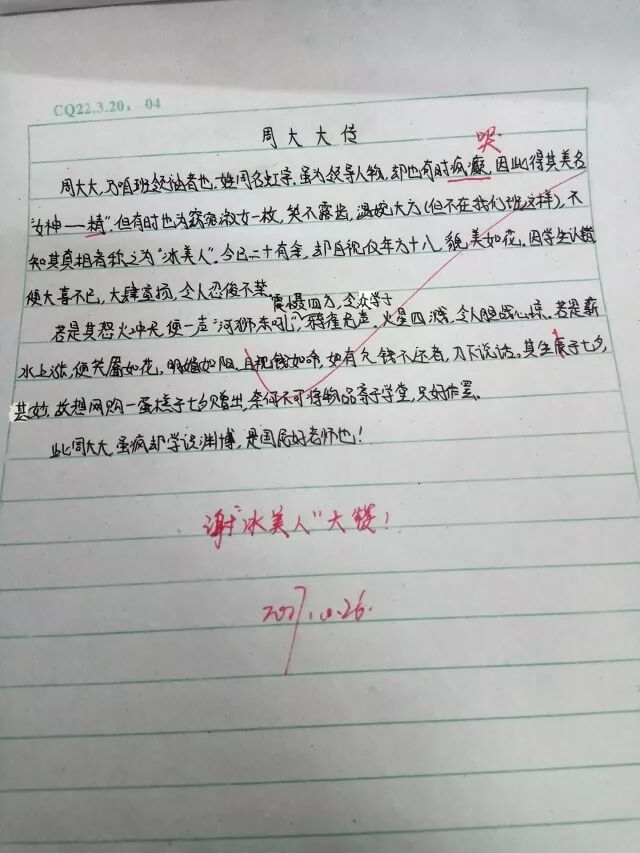 CQ22.3.20. 04
周大大传
哭
周大大,乃咱班领袖者也,姓周名虹宇,虽为领导人物,却也有时疯癫,因此得其美名
"女神一精",但有时也为窈窕淑女一枚,笑不露齿,温婉大方(但不在我们班这样),不
知其真相者称之为"冰美人",今已二十有余,却自视仅年方十八,貌美如花。因学生认错
便大喜不已,大肆宣扬,令人忍俊不禁。
震慑四方,令众学子
若是其怒火冲天,便一声"河狮东吼",鸦雀无声,火星四溅,令人胆战心惊。若是薪
水上涨,便笑靥如花,明媚如阳,自视钱如命,如有欠钱不还者,刀下说话。其生辰于七夕,
甚妙,故想网购一蛋糕于七夕赠出,奈何不可将物品寄于学堂,只好作罢。
此周大大,虽疯却学识渊博,是国民好老师也!
谢"冰美人"大餐!
10.26.